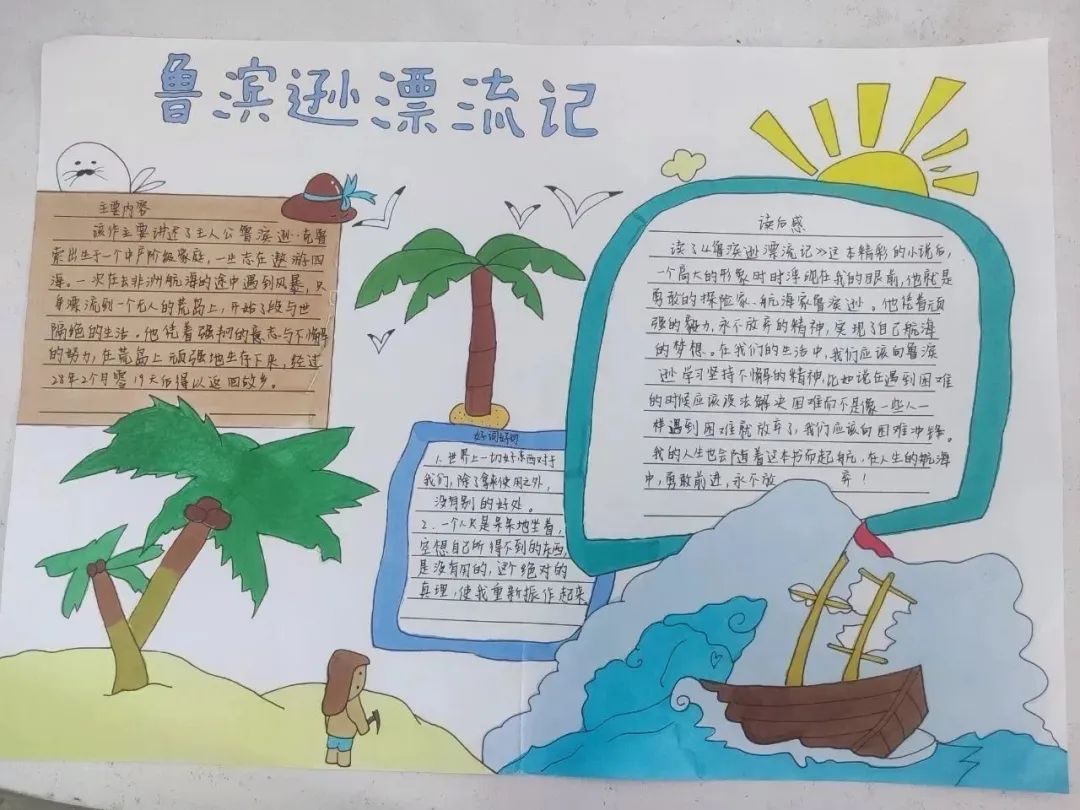 鲁滨逊漂流记
主要内容
该作主要讲述了主人公鲁滨逊·克鲁
索出生于一个中产阶级家庭，一生志在遨游四
海。一次在去非洲航海的途中遇到风暴，只
身漂流到一个无人的荒岛上，开始了段与世
隔绝的生活。他凭着强韧的意志与不懈
的努力，在荒岛上顽强地生存下来，经过
28年2个月零19天后得以返回故乡。
好词好句
1.世界上一切好东西对于
我们，除了拿来使用之外，
没有别的好处。
2.一个人只是呆呆地坐着，
空想自己所得不到的东西，
是没有用的，这个绝对的
真理，使我重新振作起来。
读后感
读了《鲁滨逊漂流记》这本精彩的小说后，
一个高大的形象时时浮现在我的眼前，他就是
勇敢的探险家、航海家鲁滨逊。他凭着顽
强的毅力，永不放弃的精神，实现了自己航海
的梦想。在我们的生活中，我们应该向鲁滨
逊学习坚持不懈的精神，比如说在遇到困难
的时候应该设法解决困难而不是像一些人一
样遇到困难就放弃了，我们应该向困难冲锋。
我的人生也会随着这本书而起航，在人生的航海
中，勇敢前进，永不放弃！